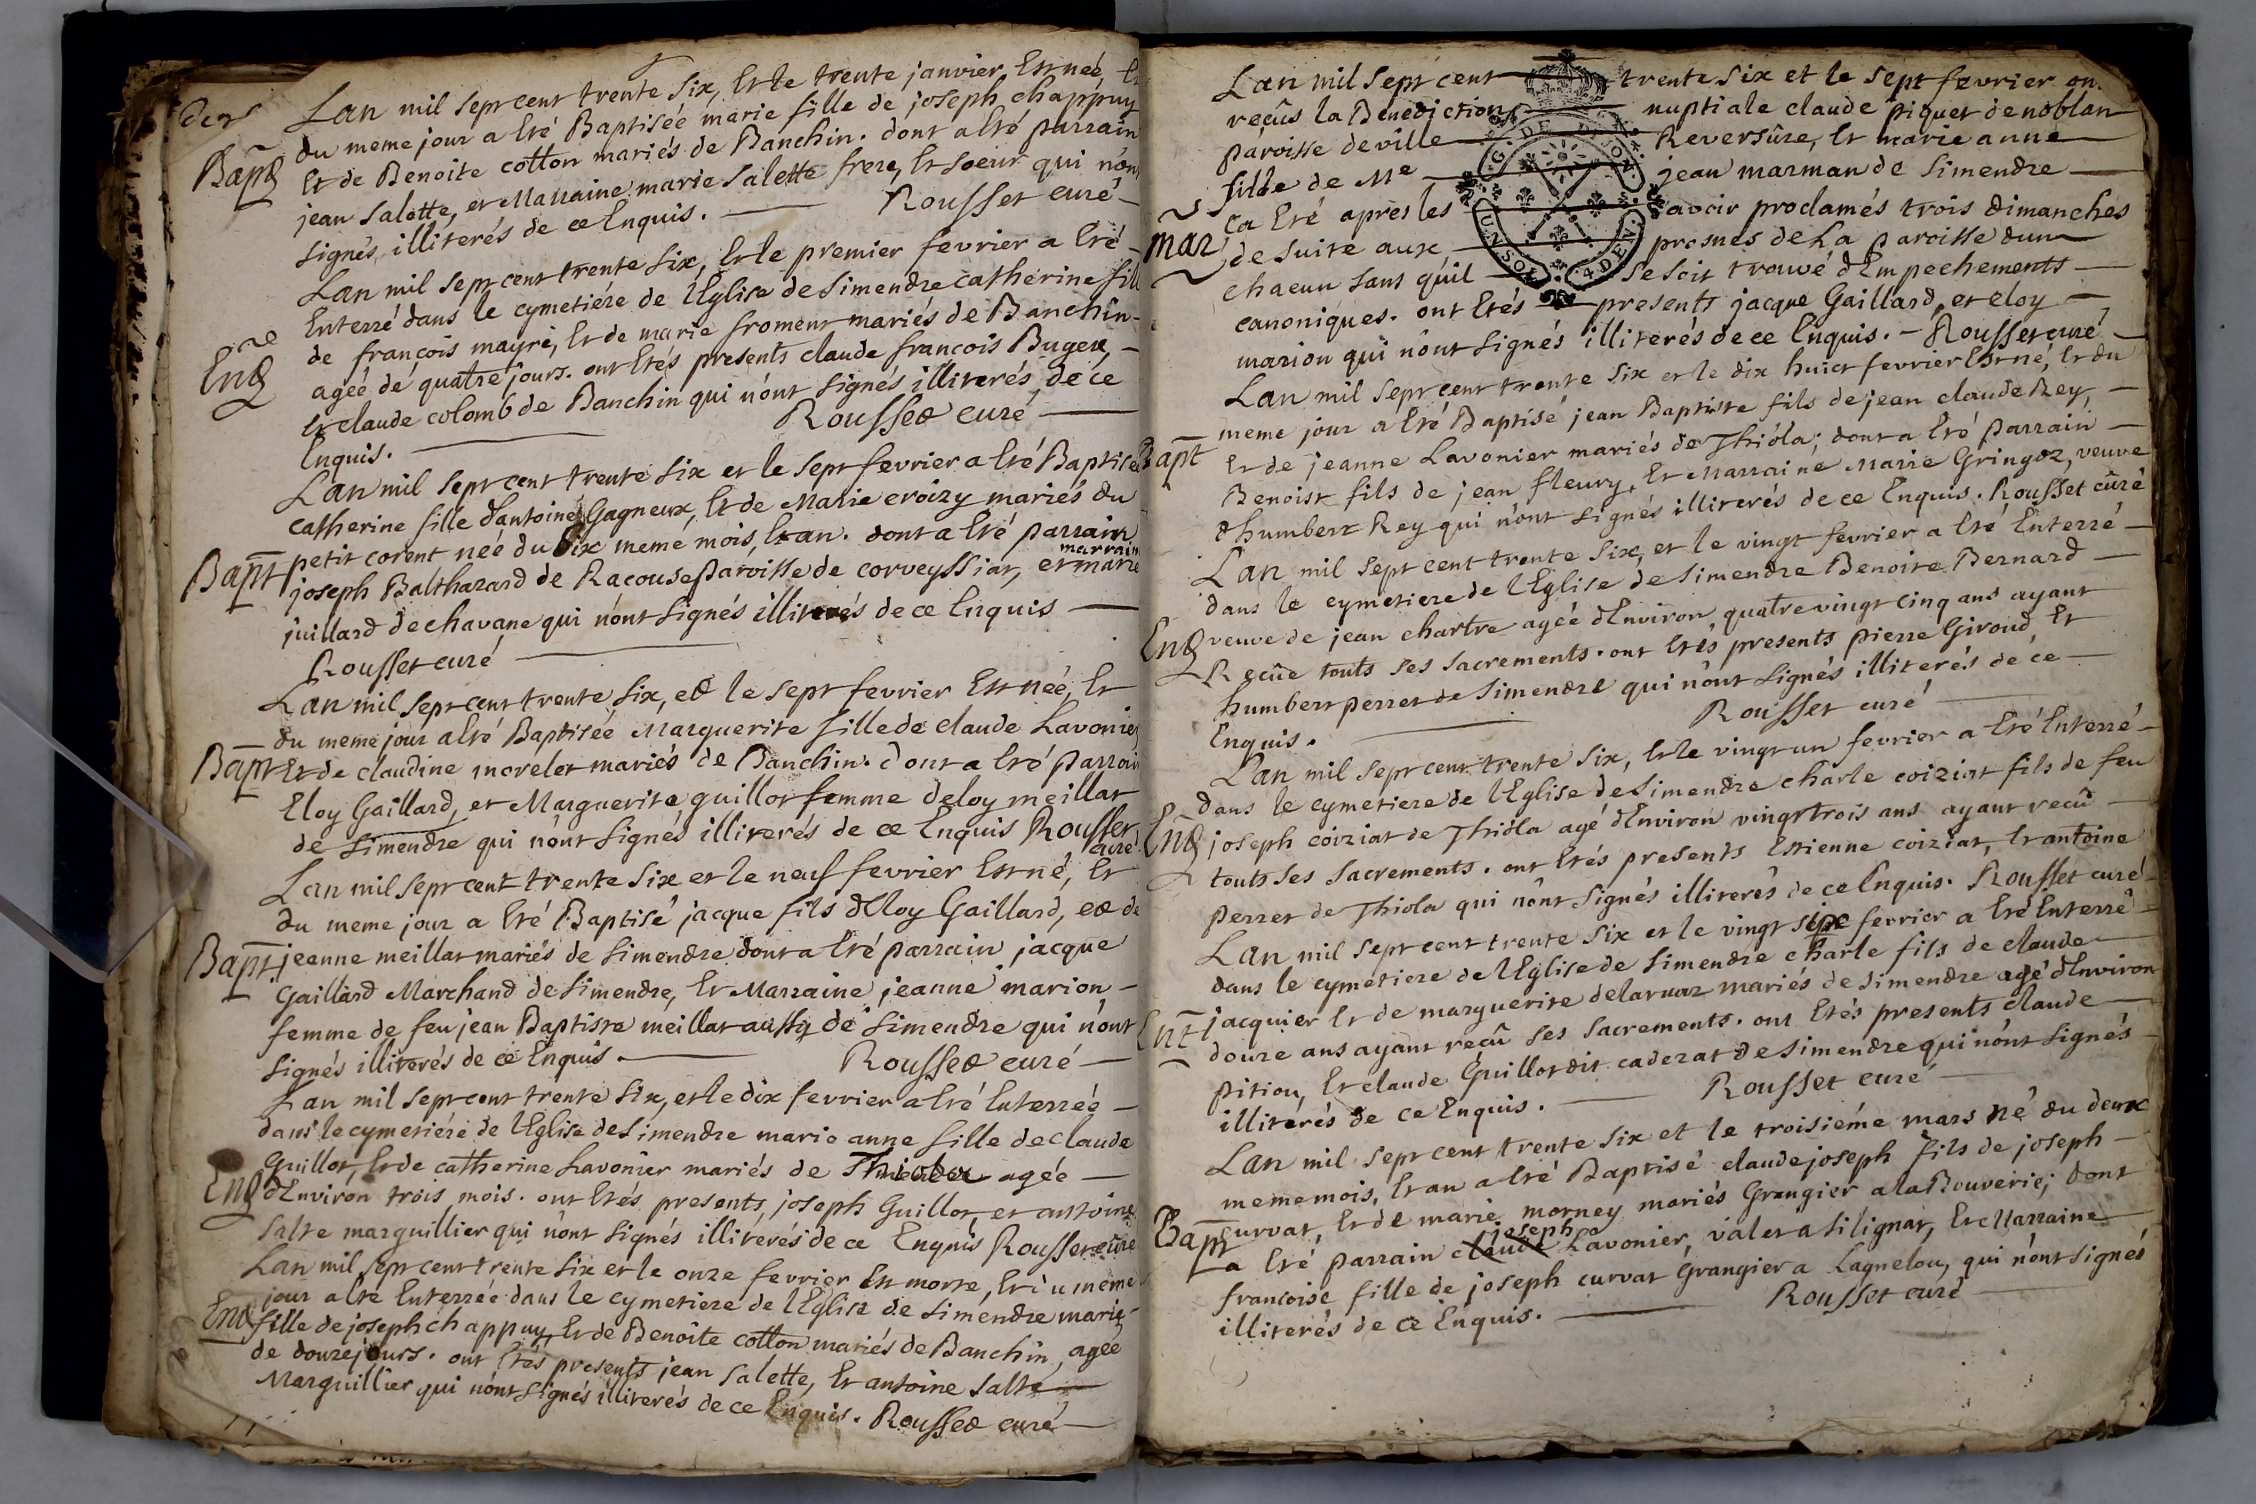 Lan mil sept cent trente six, Et le trente janvier Est neé, Et
Bapt
du meme jour a Eté Baptisée marie fille de joseph chappuy
Et de Benoite cotton mariés de Banchin. dont a Eté parrain
jean Salette, et Marraine marie Salette frere, Et soeur qui n'ont
signés illiterés de ce Enquis. Rousset curé
Lan mil sept cent trente six, Et le premier fevrier a Eté
Enterré dans le cymetiére de lEglise de Simendre catherine fille
Ent
de françois mayré, Et de marie froment mariés de Banchin
agéé de quatre jours. ont Etés presents claude francois Bugex,
Et claude colomb de Banchin qui n'ont signés illiterés, de ce
Enquis. Rousset curé
Lan mil sept cent trente six et le sept fevrier a Eté Baptisée
catherine fille d'antoine Gagneux, Et de Marie croizy mariés du
Bapt
petit corent née du Six meme mois, Et an. dont a Eté parrain
marraine
joseph Balthazard de Racouse paroisse de corveyssiat, et marie
juillard de chavane qui n'ont signés illiterés de ce Enquis
Rousset curé
Lan mil sept cent trente six, et le sept fevrier Est née, Et
du meme jour a Eté Baptisée Marguerite fille de claude Lavonier
Bapt
Et de claudine morelet mariés de Banchin. dont a Eté parrain
Eloy Gaillard, et Marguerite guillot femme deloy meillat
de Simendre qui n'ont signés illiterés de ce Enquis Rousset
curé
Lan mil sept cent trente six et le neuf fevrier Est né, Et
du meme jour a Eté Baptisé jacque fils dEloy Gaillard, et de
Bapt
jeanne meillat mariés de Simendre dont a Eté parrain jacque
Gaillard Marchand de Simendre, Et Marraine jeanne marion
femme de feu jean Baptiste meillat aussy de Simendre qui n'ont
signés illiterés de ce Enquis. Rousset curé
Lan mil sept cent trente six, et le dix fevrier a Eté Enterrée
dans le cymetiére de lEglise de Simendre marie anne fille de claude
Guillot, Et de catherine Lavonier mariés de Thiola agée
Ent
dEnviron trois mois. ont Etés presents, joseph Guillot, et antoine
Salte marguillier qui n'ont signés illiterés de ce Enquis Rousset curé
Lan mil sept cent trente six et le onze fevrier Est morte, Et du meme
jour a Eté Enterrée dans le cymetiere de lEglise de Simendre marie
Ent
fille de joseph chappuy, Et de Benoite cotton mariés de Banchin, agée
de douze jours. ont Etés presents jean Salette, Et antoine Salte
Marguillier qui n'ont signés illiterés de ce Enquis. Rousset curé
Lan mil sept cent trente six et le sept fevrier on
reçûs la Benediction nuptiale claude piquet de noblan
paroisse de ville Reversûre, Et marie anne
fille de Me jean marman de Simendre
Ca Eté apres les avoir proclamés trois dimanches
mar
de suite aux prosnes de La paroisse dun
chacun sans quil se soit trouvé dEmpechements
G. DE DIJON
UN SOL 4 DEN.
canoniques. ont Etés presents jacque Gaillard, et eloy
marion qui n'ont signés illiterés de ce Enquis. Rousset curé
Lan mil sept cent trente six et le dix huict fevrier Est né, Et du
meme jour a Eté Baptisé jean Baptiste fils de jean claude Rey,
Bapt
Et de jeanne Lavonier mariés de Thióla; dont a Eté parrain
Benoist fils de jean fleury, Et Marraine Marie Gringoz, veuve
dhumbert Rey qui n'ont signés illiterés de ce Enquis. Rousset curé
Lan mil sept cent trente six, et le vingt fevrier a Eté Enterré
dans le cymetiere de lEglise de Simendre Benoite Bernard
Ent
veuve de jean chartre agéé dEnviron quatre vingt cinq ans ayant
Reçûe touts ses sacrements. ont Etés presents pierre Giroud, Et
humbert perret de Simendre qui n'ont signés illiterés de ce
Enquis. Rousset curé
Lan mil sept cent trente six, Et le vingt un fevrier a Eté Enterré
dans le cymetiere de lEglise de Simendre charle coiziat fils de feu
Ent
joseph coiziat de Thióla agé dEnviron vingt trois ans ayant reçû
touts ses sacrements. ont Etés presents Estienne coiziat, Et antoine
perret de Thiola qui n'ont signés illiterés de ce Enquis. Rousset curé
Lan mil sept cent trente six et le vingt six fevrier a Eté Enterré
dans le cymetiere de lEglise de Simendre charle fils de claude
Ent
jacquier Et de marguerite delaruaz mariés de Simendre agé dEnviron
douze ans ayant reçû ses sacrements. ont Etés presents claude
pition, Et claude Guillot dit caderat de Simendre qui n'ont signés
illiterés de ce Enquis. Rousset curé
Lan mil sept cent trente six et le troisiéme mars né du deux
meme mois, Et an a Eté Baptisé claude joseph fils de joseph
Bapt
curvat, Et de marie morney mariés Grangier a la Bouverie; dont
joseph
a Eté parrain claude Lavonier, valet a Silignat, Et Marraine
françoise fille de joseph curvat Grangier a Lagnelou, qui n'ont signés
illiterés de ce Enquis. Rousset curé